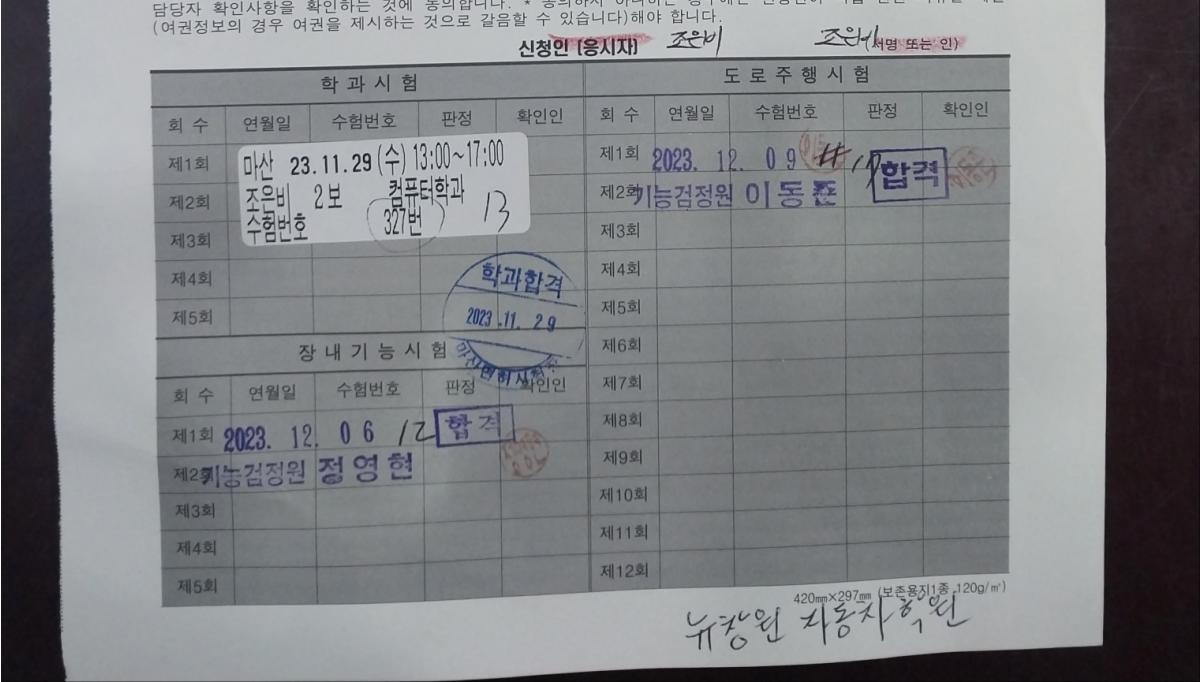 담당자 확인사항을 확인하는 것에 동의합니다. * 동의하지
(여권정보의 경우 여권을 제시하는 것으로 갈음할 수 있습니다)해야 합니다.
신청인 (응시자) 조은비 조은비 (서명 또는 인)
학 과 시 험
회 수 연월일 수험번호 판정 확인인
제1회
제2회
제3회
제4회
제5회
마산 23.11.29 (수) 13:00~17:00
조은비 2보 컴퓨터학과
수험번호 327번 13
학과합격
2023.11. 29
장 내 기 능 시 험
회 수 연월일 수험번호 판정 확인인
제1회 2023. 12. 06 12 합격
제2회 기능검정원 정영현
제3회
제4회
제5회
도 로 주 행 시 험
회 수 연월일 수험번호 판정 확인인
제1회 2023. 12. 09 합격
제2회 기능검정원 이동준
제3회
제4회
제5회
제6회
제7회
제8회
제9회
제10회
제11회
제12회
420㎜×297㎜ (보존용지1종 120g/㎡)
뉴창원 자동차학원